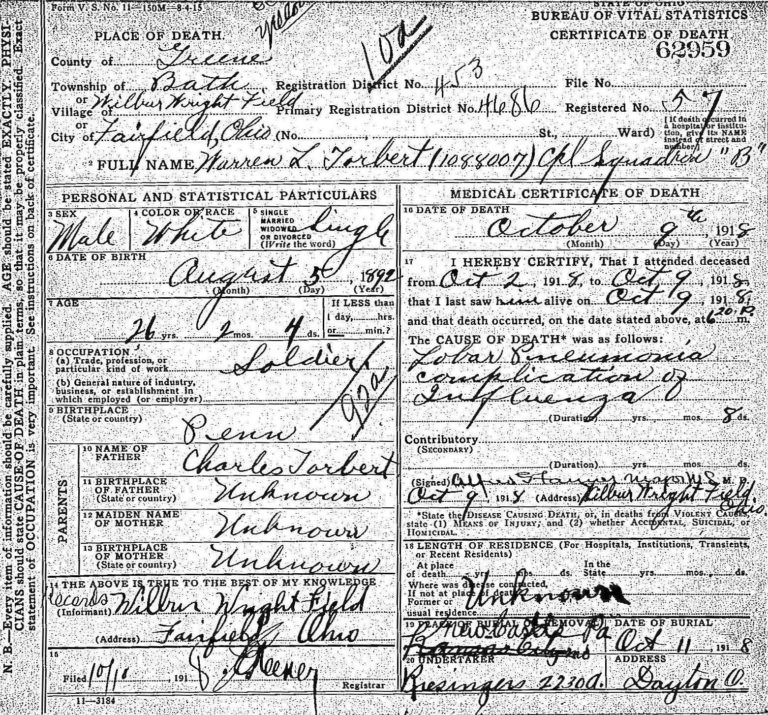 Form V. S. No. 11—150M—8-4-15
STATE OF OHIO
BUREAU OF VITAL STATISTICS
CERTIFICATE OF DEATH
62959
10a
PLACE OF DEATH.
County of Greene
Township of Bath Registration District No. 453 File No.
or
Village of Wilbur Wright Field Primary Registration District No. 4686 Registered No. 57
or
City of Fairfield, Ohio (No. , St., Ward)
[If death occurred in
a hospital or institu-
tion, give its NAME
instead of street and
number.]
2 FULL NAME Warren L. Torbert (1088007) Cpl Squadron "B"
PERSONAL AND STATISTICAL PARTICULARS
3 SEX
Male
4 COLOR OR RACE
White
5 SINGLE
MARRIED
WIDOWED
OR DIVORCED
(Write the word)
Single
6 DATE OF BIRTH
August 5, 1892
(Month) (Day) (Year)
7 AGE
26 yrs. 2 mos. 4 ds.
If LESS than
1 day,.....hrs.
or.....min.?
8 OCCUPATION
(a) Trade, profession, or
particular kind of work Soldier
(b) General nature of industry,
business, or establishment in
which employed (or employer)
92a
9 BIRTHPLACE
(State or country)
Penn
PARENTS
10 NAME OF
FATHER
Charles Torbert
11 BIRTHPLACE
OF FATHER
(State or country)
Unknown
12 MAIDEN NAME
OF MOTHER
Unknown
13 BIRTHPLACE
OF MOTHER
(State or country)
Unknown
14 THE ABOVE IS TRUE TO THE BEST OF MY KNOWLEDGE
Records
(Informant) Wilbur Wright Field
(Address) Fairfield, Ohio
15
Filed 10/10, 1918
Registrar
11—3184
MEDICAL CERTIFICATE OF DEATH
16 DATE OF DEATH
October 9th, 1918
(Month) (Day) (Year)
17 I HEREBY CERTIFY, That I attended deceased
from Oct 2, 1918, to Oct 9, 1918,
that I last saw him alive on Oct 9, 1918,
and that death occurred, on the date stated above, at 6 20 P. m.
The CAUSE OF DEATH* was as follows:
Lobar Pneumonia
complication of
Influenza
(Duration) yrs. mos. 8 ds.
Contributory
(SECONDARY)
(Duration) yrs. mos. ds.
(Signed) M. D.
Oct 9, 1918 (Address) Wilbur Wright Field
Ohio.
*State the DISEASE CAUSING DEATH, or, in deaths from VIOLENT CAUSES,
state (1) MEANS OF INJURY; and (2) whether ACCIDENTAL, SUICIDAL, or
HOMICIDAL.
18 LENGTH OF RESIDENCE (For Hospitals, Institutions, Transients,
or Recent Residents)
At place
of death yrs. mos. ds.
In the
State yrs. mos. ds.
Where was disease contracted,
If not at place of death?
Former or
usual residence
Unknown
19 PLACE OF BURIAL OR REMOVAL
New Castle Pa
DATE OF BURIAL
Oct 11, 1918
20 UNDERTAKER
Kiesingers 2230A.
ADDRESS
Dayton O.
N. B.—Every item of information should be carefully supplied. AGE should be stated EXACTLY. PHYSI-
CIANS should state CAUSE OF DEATH in plain terms, so that it may be properly classified. Exact
statement of OCCUPATION is very important. See instructions on back of certificate.